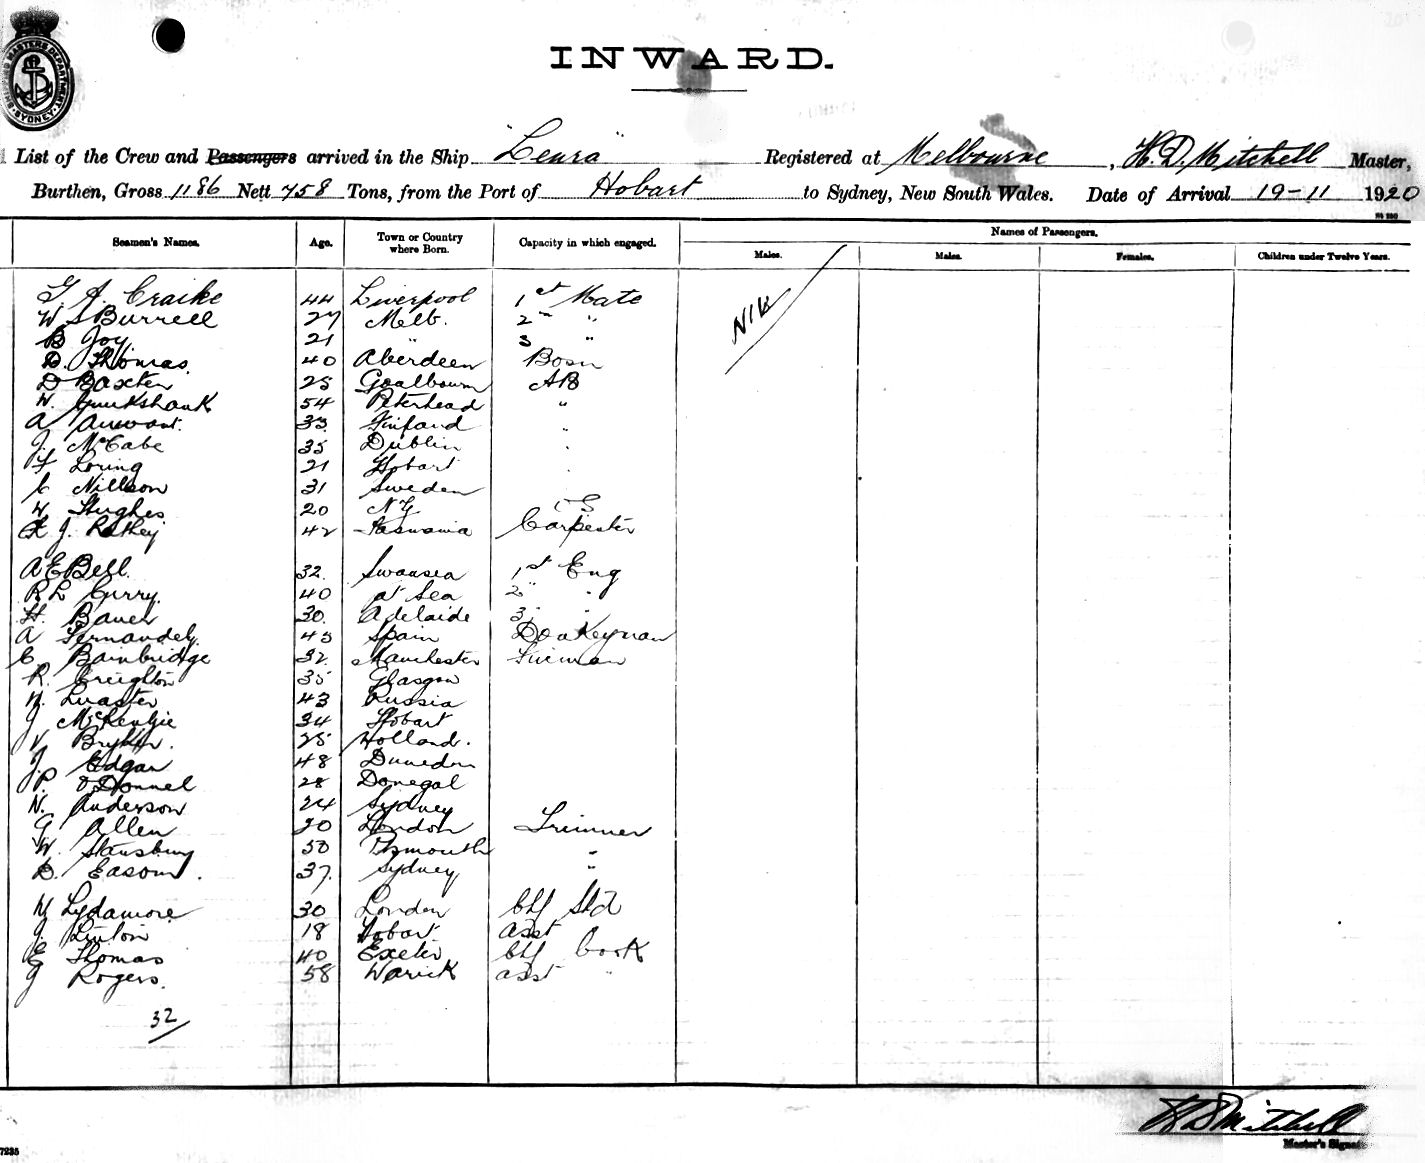 SHIPPING MASTERS DEPARTMENT SYDNEY
INWARD.
List of the Crew and Passengers arrived in the Ship "Leura" Registered at Melbourne, H. D. Mitchell Master,
Burthen, Gross 1186 Nett 758 Tons, from the Port of Hobart to Sydney, New South Wales. Date of Arrival 19-11 1920
Seamen's Names. Age. Town or Country where Born. Capacity in which engaged. Names of Passengers.
Males. Males. Females. Children under Twelve Years.
G. A. Craike 44 Liverpool 1st Mate
Nil
W S Burrell 27 Melb. 2nd "
B Joy 21 " 3 "
D. Thomas 40 Aberdeen Bosn
D Baxter 25 Goalbourn AB
W. 54 Peterhead "
A 33 Finland "
J. McCabe 35 Dublin
F Loring 21 Hobart
C Nillson 31 Sweden
W Hughes 20 N Z
J. 42 Tasmania Carpester
A E Bell 32 Swansea 1st Eng
R L Curry. 40 at Sea 2 "
H. Bauer 30 Adelaide 3 "
A Fernandez. 43 Spain Donkeyman
C Bainbridge 32 Manchester Fireman
R. Creighton 35 Glasgow
43 Russia
J McKenzie 34 Hobart
V 25 Holland.
J. Edgar 48 Dunedin
P. O'Donnel 28 Donegal
N. Anderson 24 Sydney
G Allen 30 London Trimmer
W. Stansbury 50 Plymouth "
D. Eason. 37 Sydney "
W Lydamore 30 London Chf Std
J. Linton 18 Hobart asst
E Thomas 40 Exeter Chf Cook
J Rogers. 58 Warick asst "
32
H D Mitchell
Master's Signa
7235